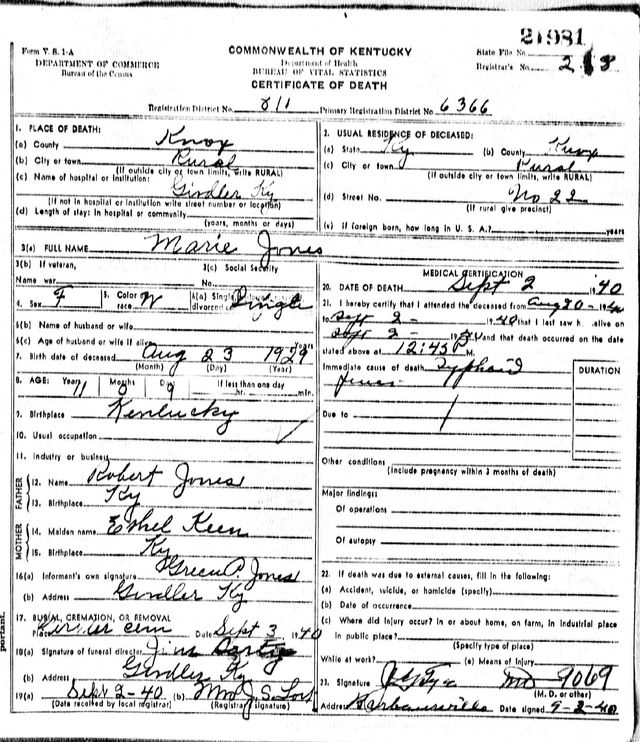 21981
Form V. S. 1-A
DEPARTMENT OF COMMERCE
Bureau of the Census
COMMONWEALTH OF KENTUCKY
Department of Health
BUREAU OF VITAL STATISTICS
CERTIFICATE OF DEATH
State File No.
Registrar's No. 2
Registration District No. 811 Primary Registration District No. 6366
1. PLACE OF DEATH:
(a) County Knox
(b) City or town Rural
(If outside city or town limits, write RURAL)
(c) Name of hospital or institution: Girdler Ky
(If not in hospital or institution write street number or location)
(d) Length of stay: In hospital or community
(years, months or days)
2. USUAL RESIDENCE OF DECEASED:
(a) State Ky (b) County Knox
(c) City or town Rural
(If outside city or town limits, write RURAL)
(d) Street No. No 22
(If rural give precinct)
(e) If foreign born, how long in U. S. A.? years
3(a) FULL NAME Marie Jones
3(b) If veteran,
Name war
3(c) Social Security
No.
4. Sex F 5. Color or race W 6(a) Single, divorced Single
6(b) Name of husband or wife
6(c) Age of husband or wife if alive Years
7. Birth date of deceased Aug 23 1929
(Month) (Day) (Year)
8. AGE: Years 11 Months 0 Days 9 If less than one day
hr. min.
9. Birthplace Kentucky
10. Usual occupation
11. Industry or business
FATHER
12. Name Robert Jones
13. Birthplace Ky
MOTHER
14. Maiden name Ethel Keen
15. Birthplace Ky
16(a) Informant's own signature Green P Jones
(b) Address Girdler Ky
17. BURIAL, CREMATION, OR REMOVAL
Place cem Date Sept 3 1940
18(a) Signature of funeral director Jim
(b) Address Girdler Ky
19(a) Sept 2-40 (b) Mrs J. S.
(Date received by local registrar) (Registrar signature)
MEDICAL CERTIFICATION
20. DATE OF DEATH Sept 2 1940
21. I hereby certify that I attended the deceased from Aug 20-1940
to Sept 2- 1940 that I last saw h alive on
Sept 2- 1940 and that death occurred on the date
stated above at 12:45 P M.
Immediate cause of death Typhoid
fever
DURATION
Due to
Other conditions
(Include pregnancy within 3 months of death)
Major findings:
Of operations
Of autopsy
22. If death was due to external causes, fill in the following:
(a) Accident, suicide, or homicide (specify)
(b) Date of occurrence
(c) Where did injury occur? In or about home, on farm, in industrial place
in public place?
(Specify type of place)
While at work? (e) Means of Injury
23. Signature MD 9069
(M. D. or other)
Address Barbourville Date signed 9-2-40
portant.